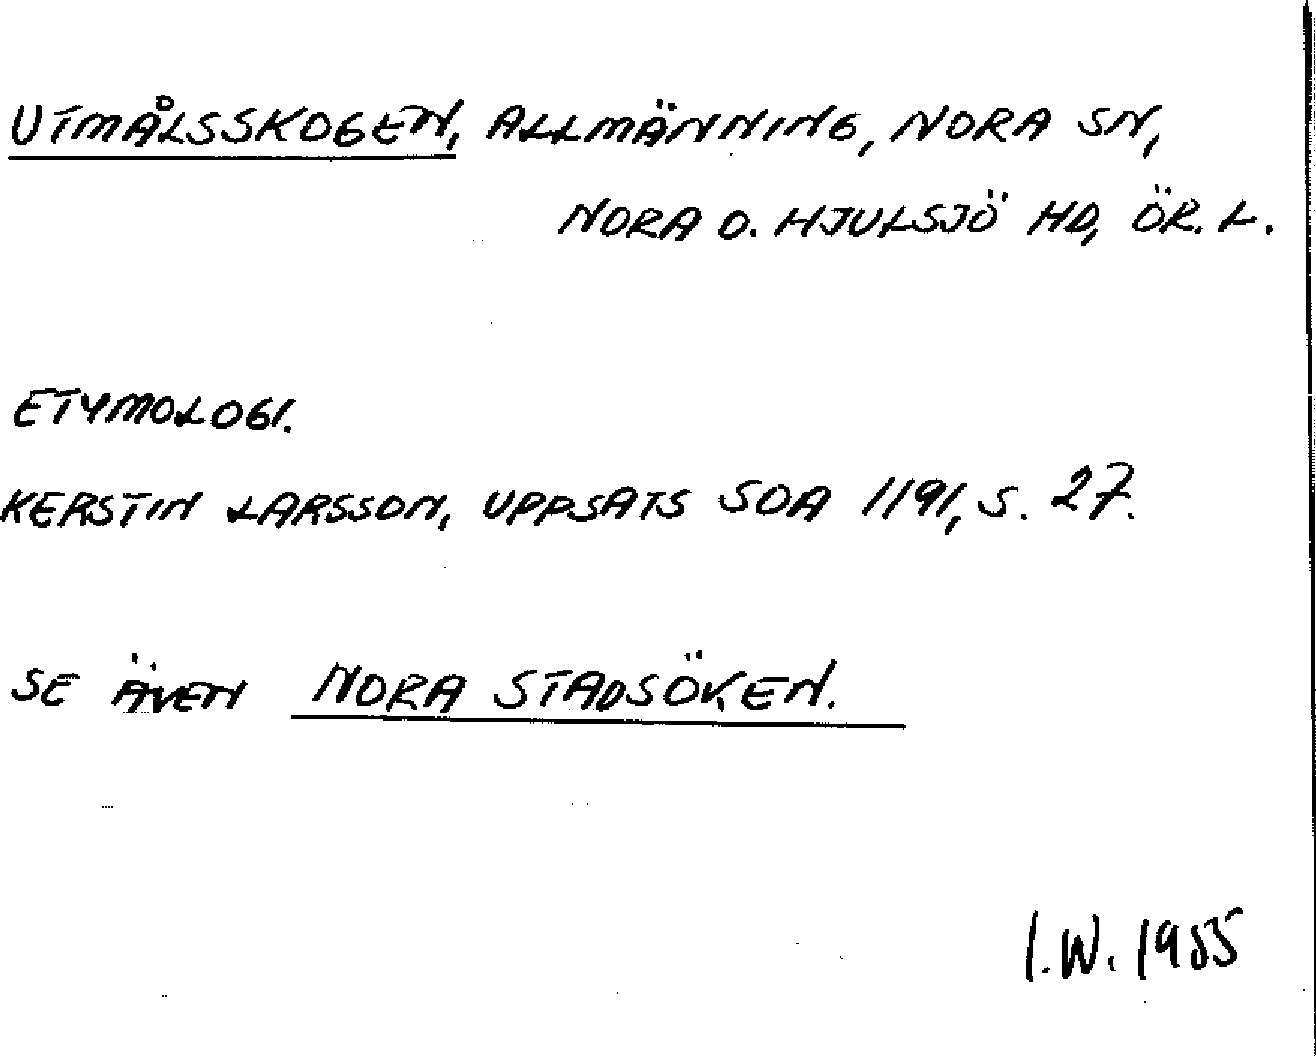 UTMÅLSSKOGEN, ALLMÄNNING, NORA SN,
NORA O. HJULSJÖ HD, ÖR. L.
ETYMOLOGI.
KERSTIN LARSSON, UPPSATS SOA 1191, S. 27.
SE ÄVEN NORA STADSÖKEN.
I.W. 1985